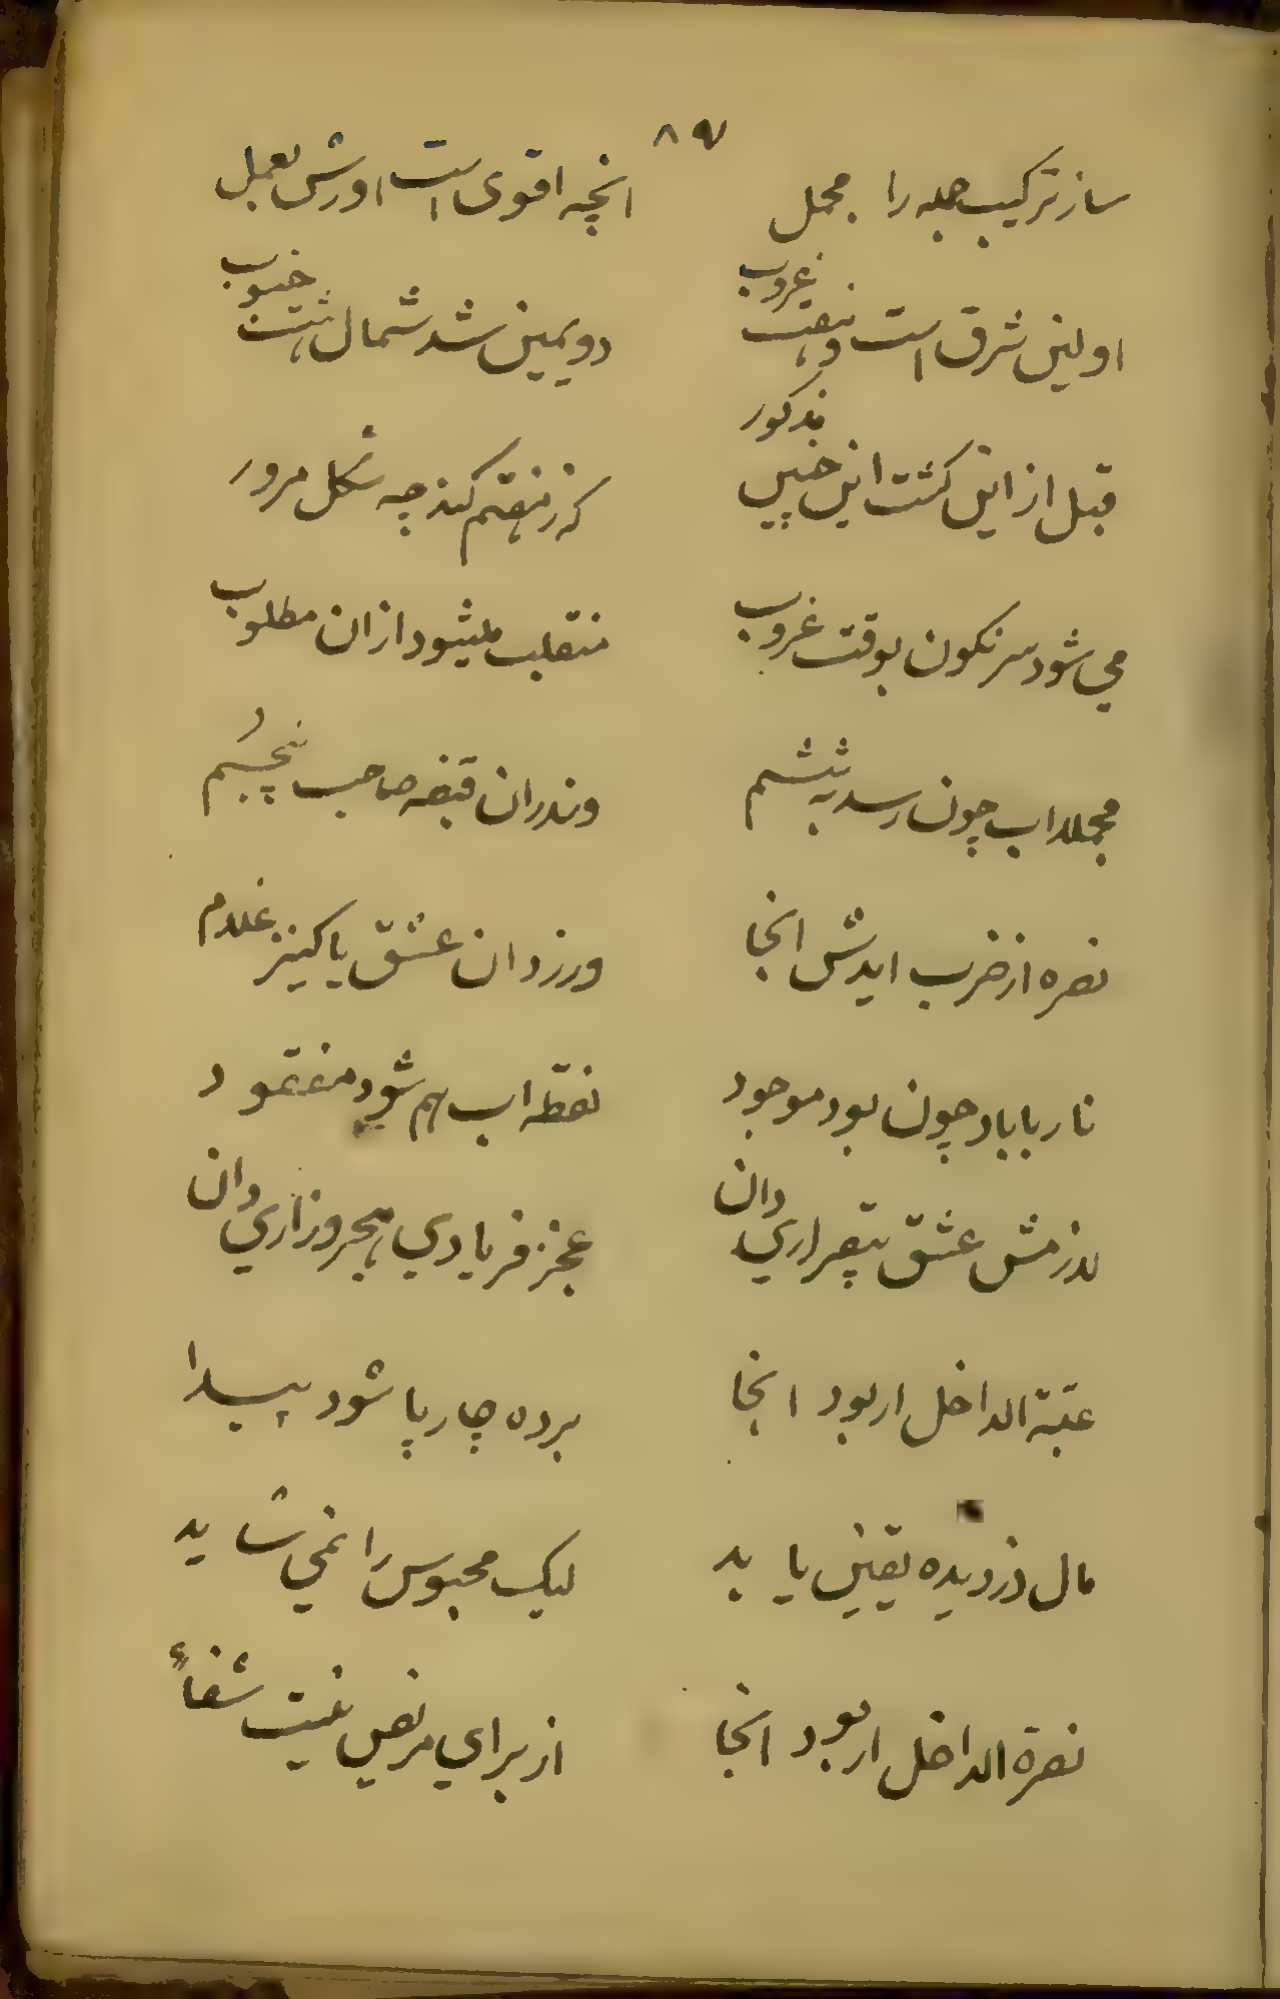 ۸۷
ساز ترکیب جمله را مجمل انچه اقوی است اورش بعمل
اولین شرق است و هفت غروب دویمین شد شمال هشت جنوب
قبل ازاین کشت این چنین مذکور که زهفتم کند چه شکل مرور
می شود سرنکون بوقت غروب منقلب میشود ازان مطلوب
مجملا اب چون رسد به ششم وندران قبضه صاحب پنجم
نصره از خرب ایدش انجا ورزدان عشق یا کنیز غلام
نار با باد چون بود موجود نقطه اب هم شود مفقود
عشق بیقراری دان عجز فریادی هجر وزاری دان
عتبة الداخل ار بود انجا برده چارپا شود پیدا
مال دزدیده یقین یابد لیک محبوس را نمی شاید
نصرة الداخل ار بود انجا از برای مریض نیست شفاء